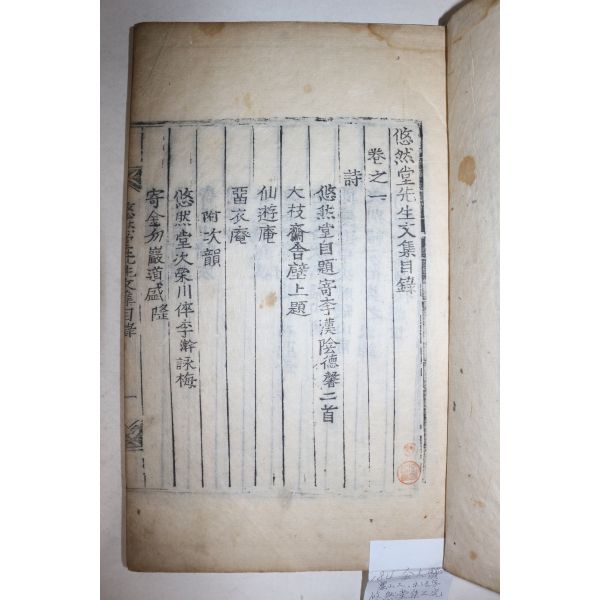 悠然堂先生文集目錄
卷之一
詩
悠然堂自題寄李漢陰德馨二首
大枝齋舍壁上題
仙遊庵
留衣庵
附次韻
悠然堂次榮川倅李澣詠梅
寄金勿巖道盛隆
悠然堂先生文集目錄
一